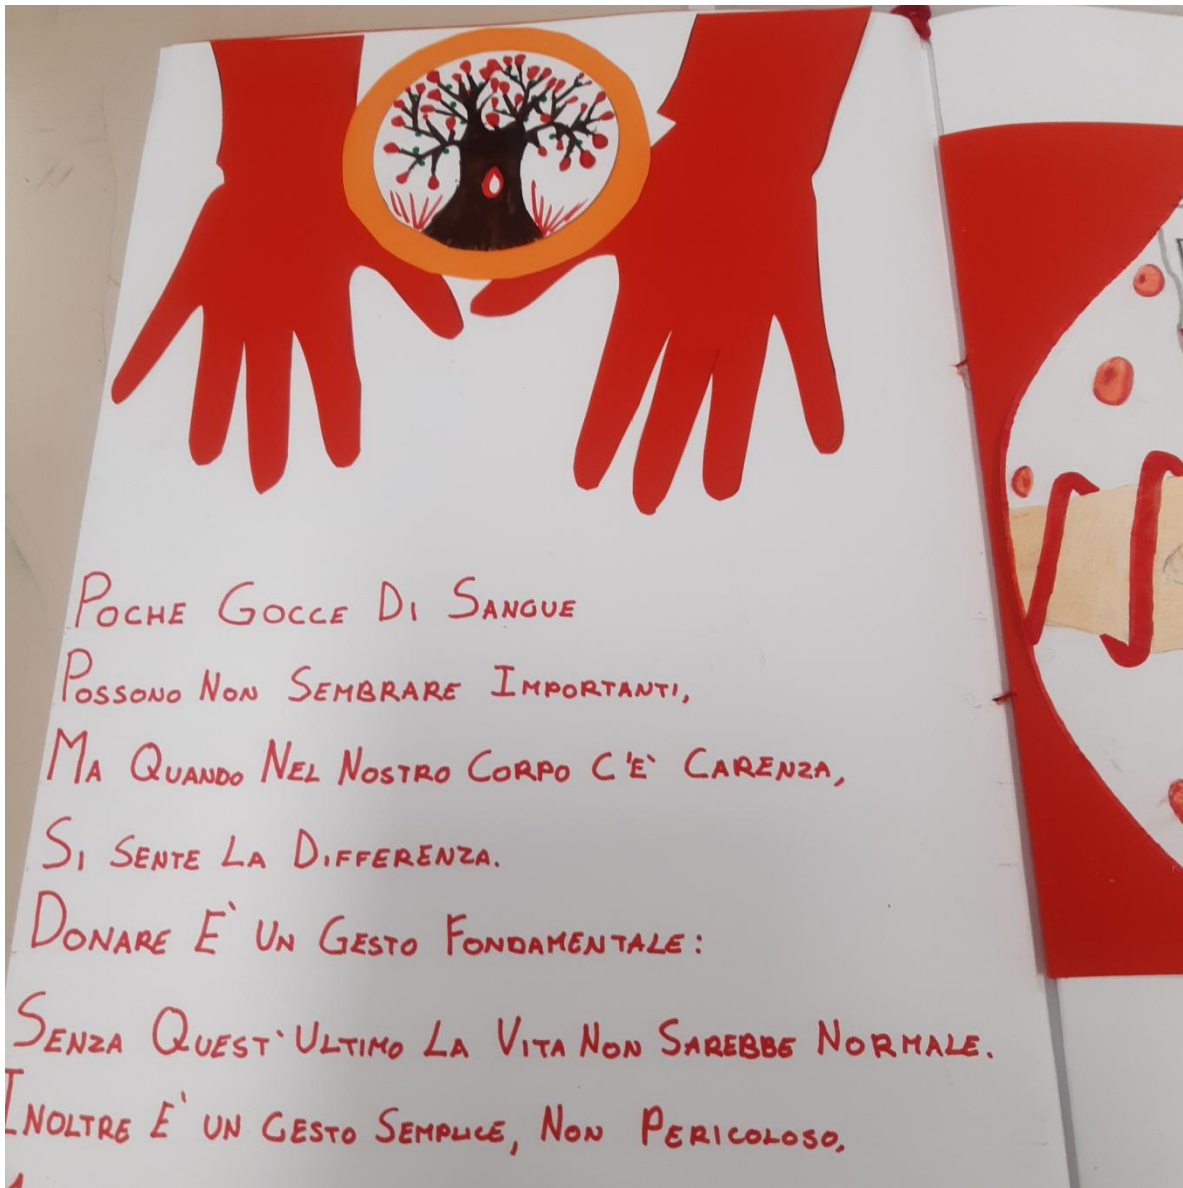 POCHE GOCCE DI SANGUE
POSSONO NON SEMBRARE IMPORTANTI,
MA QUANDO NEL NOSTRO CORPO C'E' CARENZA,
SI SENTE LA DIFFERENZA.
DONARE E' UN GESTO FONDAMENTALE:
SENZA QUEST'ULTIMO LA VITA NON SAREBBE NORMALE.
INOLTRE E' UN GESTO SEMPLICE, NON PERICOLOSO,